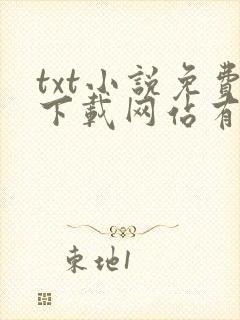 txt小説免費
下載网佔有
東地1